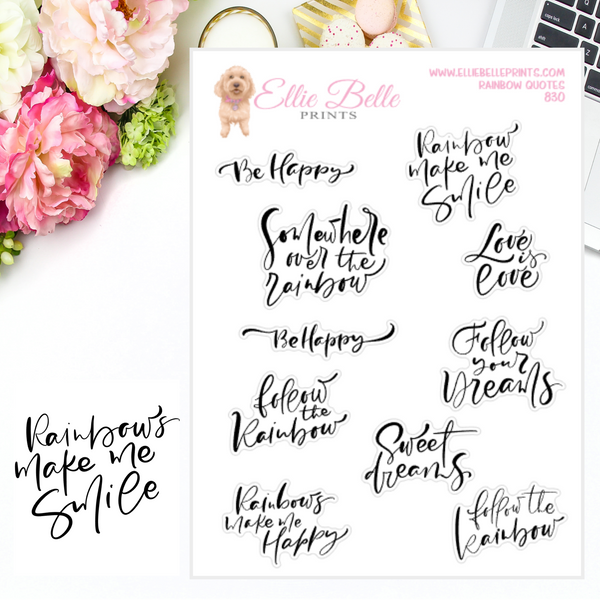 Ellie Belle
PRINTS
WWW.ELLIEBELLEPRINTS.COM
RAINBOW QUOTES
830
Be Happy
Rainbows
make me
Smile
Somewhere
over the
rainbow
Love
is
love
Be Happy
Follow
your
Dreams
follow
the
Rainbow
Sweet
dreams
Rainbows
make me
Happy
follow the
Rainbow
Rainbows
make me
Smile